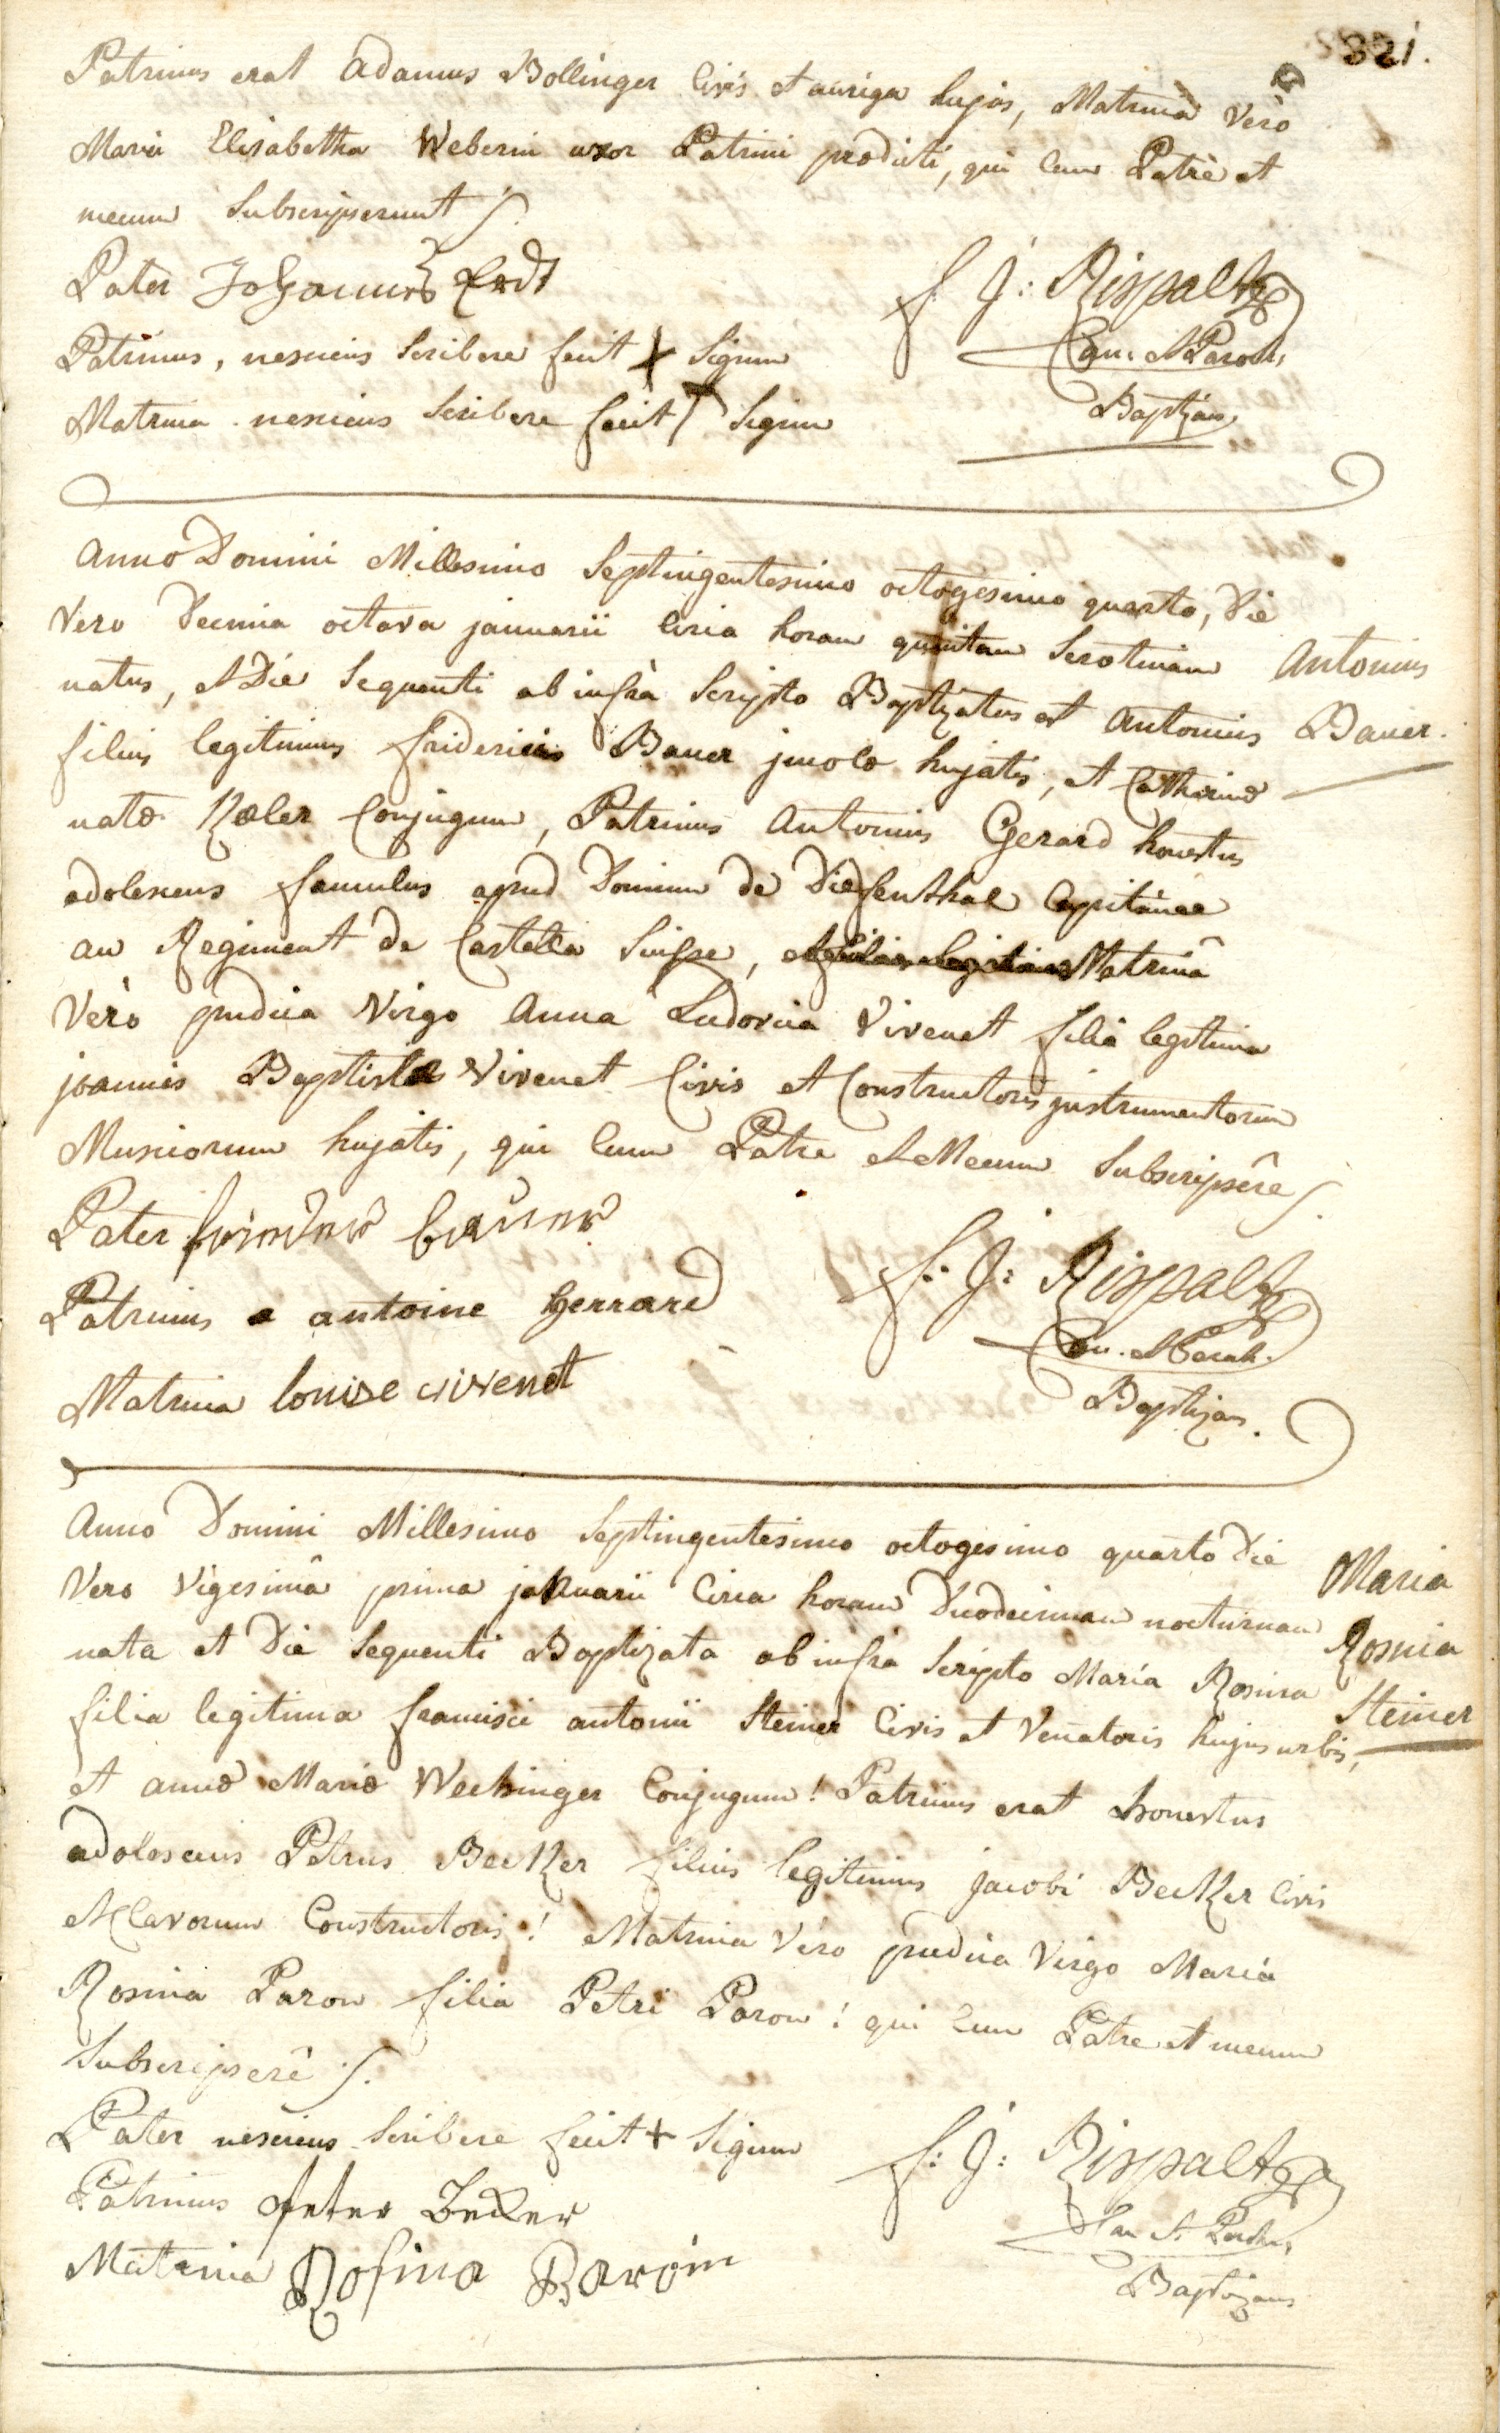 321.
Patrinus erat Adamus Bollinger Civis et auriga hujas, Matrina Vero
Maria Elisabetha Weberin uxor Patrini prædicti, qui Cum Patre et
mecum Subscripserunt
Pater Johannes Erdt
Patrinus, nesciens Scribere fecit + Signum
Matrina nesciens Scribere fecit + Signum
f. J: Rispaltz
Can. et Paroch.
Baptizans
Anno Domini Millesimo Septingentesimo octogesimo quarto, Die
Vero Decima octava januarii Circa horam quintam Serotinam
natus, et Die Sequenti ab infrà Scripto Baptizatus est Antonius
filius legitimus friderici Bauer jncolæ hujatis, et Catharinæ
natæ Kæler Conjugum, Patrinus Antonius Gerard honestus
adolescens famulus apud Dominum de Diefenthal Capitaine
au Regiment de Castella Suisse, Matrina
Verò pudica Virgo Anna Ludovica Vivenet filia legitima
joannis Baptistæ Vivenet Civis et Constructoris jnstrumentorum
Musicorum hujatis, qui Cum Patre et Mecum Subscripsêre
Antonius
Bauer.
Pater frider bauer
Patrinus antoine gerrard
Matrina louise vivenet
f: J: Rispaltz
Can. et Paroch.
Baptizans.
Anno Domini Millesimo Septingentesimo octogesimo quarto Die
Vero Vigesimâ prima januarii Circa horam Duodecimam nocturnam
nata et Die Sequenti Baptizata ab infra Scripto Maria Rosina
filia legitima francisci antonii Steiner Civis et Venatoris hujus urbis,
et annæ Mariæ Wechinger Conjugum! Patrinus erat honestus
adolescens Petrus Becker filius legitimus jacobi Becker Civis
et Clavorum Constructoris! Matrina Vero pudica Virgo Maria
Rosina Paron filia Petri Paron! qui Cum Patre et mecum
Subscripserê
Maria
Rosina
Steiner
Pater nesciens Scribere fecit + Signum
Patrinus Peter Becker
Matrina Rosina Baronin
f: J: Rispaltz
Can. et Paroch.
Baptizans